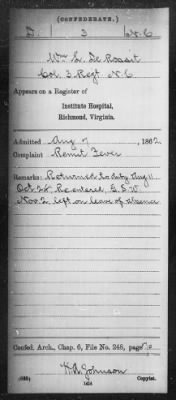 (CONFEDERATE.)
D. | 3 | N. C
Wm L. De Rossit
Col. 3 Regt N. C
Appears on a Register of
Institute Hospital,
Richmond, Virginia.
Admitted Aug 7, 1862
Complaint Remit Fever
Remarks: Returned to duty Aug 11
Oct 28 Re entered, G. S. W.
Nov 2 left on leave of absence
Confed. Arch., Chap. 6, File No. 248, page
H. B. Johnson
Copyist.